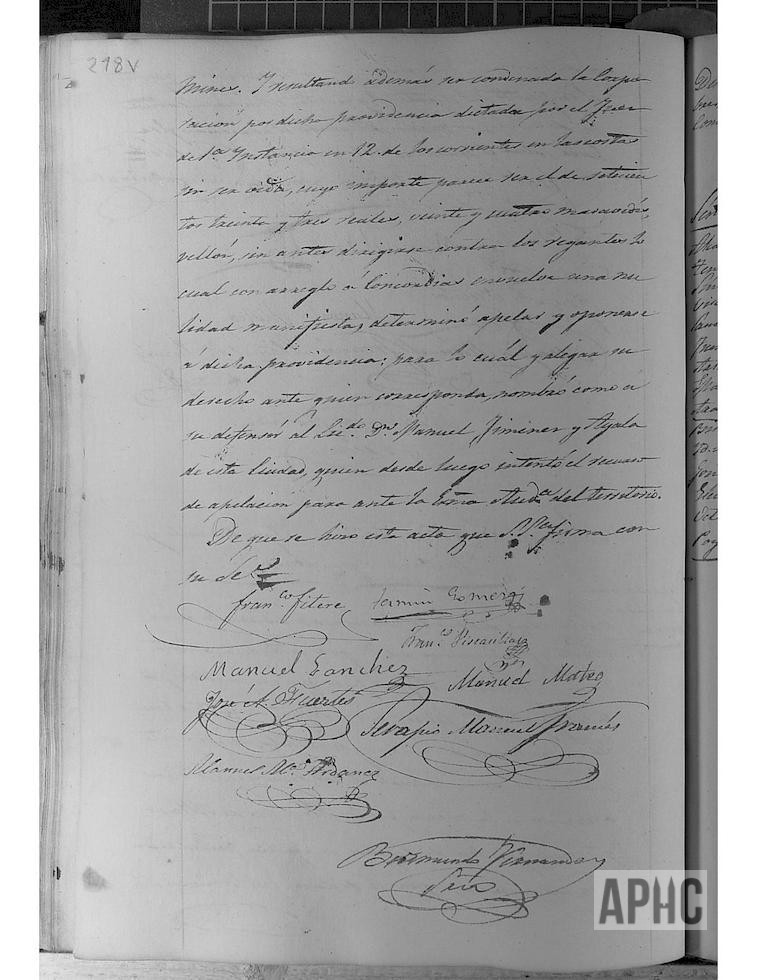 218v
mines. Y resultando además ser condenada la Corpo
ración por dicha providencia dictada por el Juez
de 1ª Instancia en 12 de los corrientes en las costas
sin ser oida, cuyo importe parece ser el de setecien
tos treinta y tres reales, veinte y cuatro maravedis,
vellón, sin antes dirigirse contra los regantes lo
cual con arreglo á Concordias envuelve una nu
lidad manifiesta, determinó apelar y oponerse
á dicha providencia; para lo cuál y alegar su
derecho ante quien corresponda, nombró como á
su defensór al Licdo. Dn. Manuel Jimenez y Ayala
de esta Ciudad, quien desde luego intentó el recurso
de apelación para ante la Exma Audª del territorio.
De que se hizo esta acta que S.S. firma con
su Sec
Franco. fitere Fermin Gomez
Franco.
Manuel Sanchez Manuel Mateo
José A. Fuertes
Serapio Manuel Francés
Manuel Mª. Ardanaz
Bermundo Hernandez
Srio
APHC